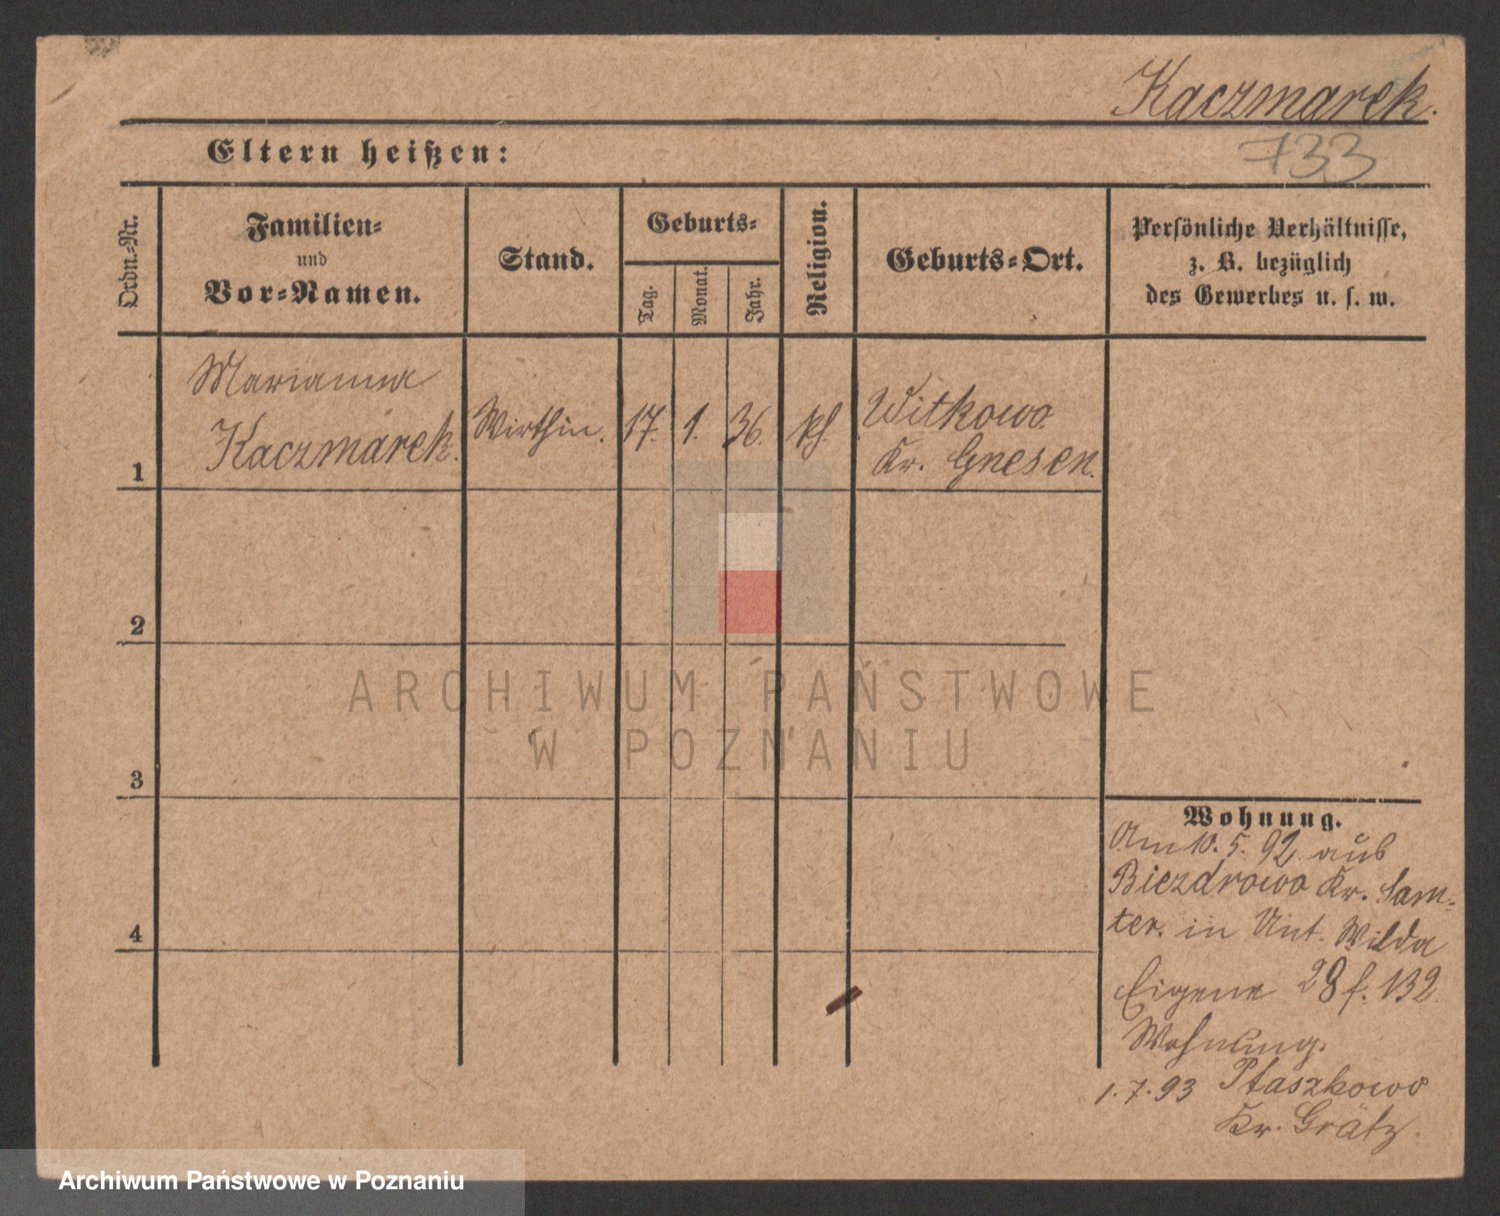 Kaczmarek.
733
Eltern heißen:
Ordn.-Nr.
Familien-
und
Vor-Namen.
Stand.
Geburts-
Tag.
Monat.
Jahr.
Religion.
Geburts-Ort.
Persönliche Verhältnisse,
z. B. bezüglich
des Gewerbes u. s. w.
1
Marianna
Kaczmarek.
Wirthin.
17.
1.
36.
kh.
Witkowo
Kr. Gnesen.
2
3
4
ARCHIWUM PAŃSTWOWE
W POZNANIU
Wohnung.
Am 10. 5. 92 aus
Biezdrowo Kr. Sam-
ter. in Unt. Wilda
Eigene 28 f. 132
Wohnung.
1. 7. 93 Ptaszkowo
Kr. Grätz.
Archiwum Państwowe w Poznaniu